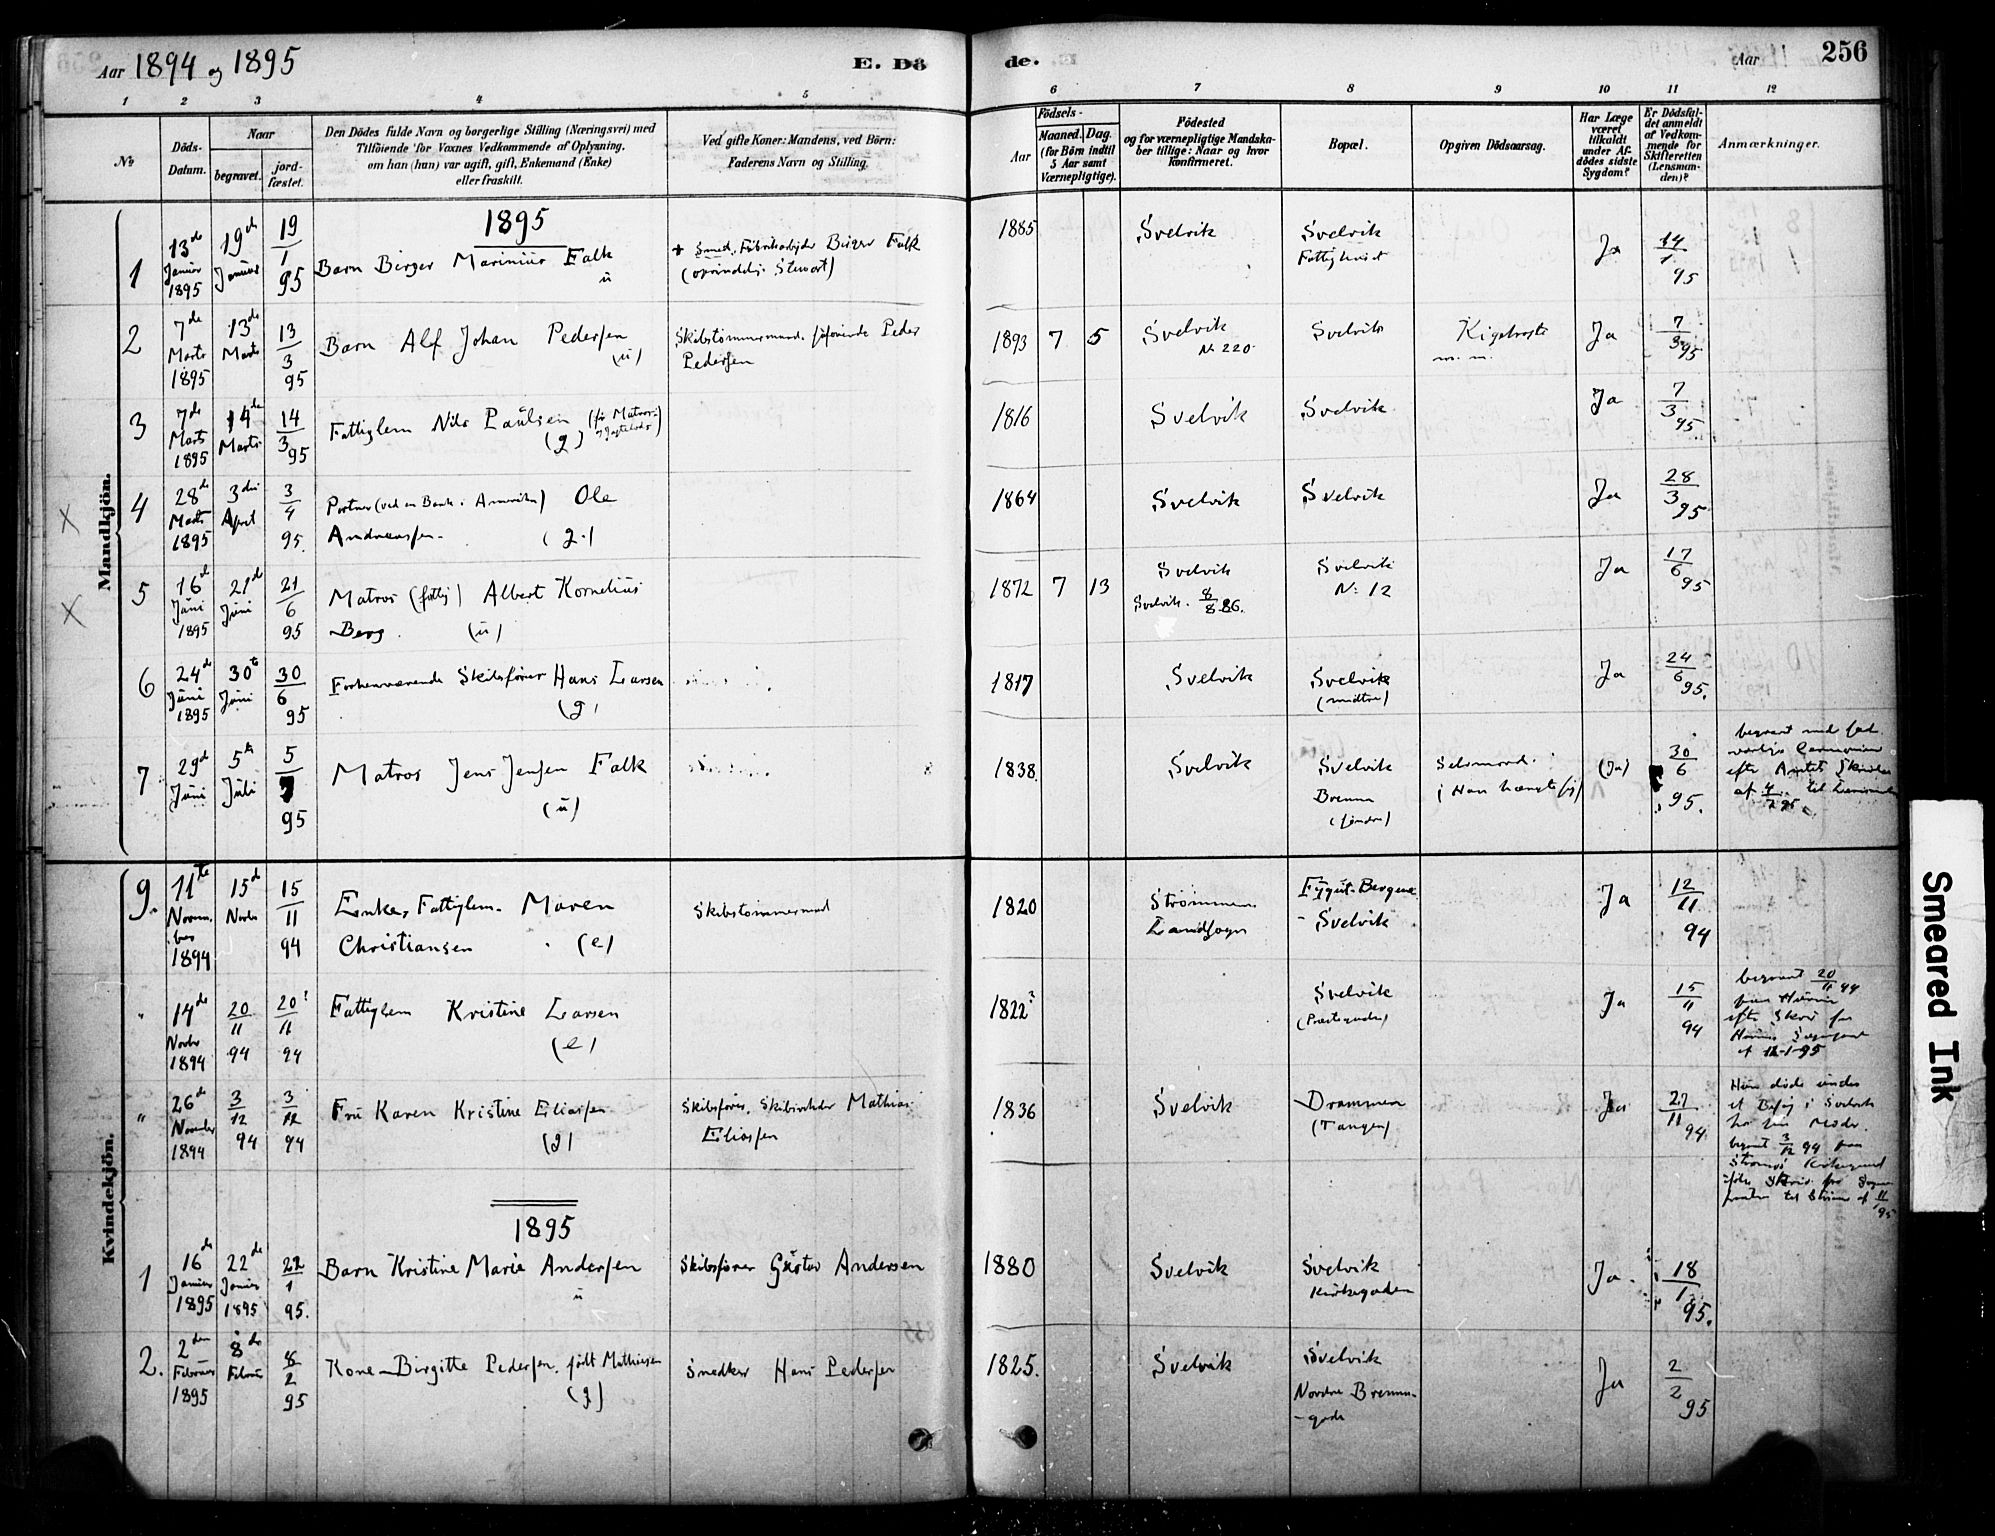 Aar 1894 og 1895
E. Döde.
Aar
256
1 2 3 4 5 6 7 8 9 10 11 12
No
Döds-Datum.
Naar
begravet.
jord-fæstet.
Den Dödes fulde Navn og borgerlige Stilling (Næringsvei) med
Tilföiende for Voxnes Vedkommende af Oplysning,
om han (hun) var ugift, gift, Enkemand (Enke)
eller fraskilt.
Ved gifte Koner: Mandens, ved Börn:
Faderens Navn og Stilling.
Födsels-
Aar
Maaned. Dag.
(for Börn indtil
5 Aar samt
Værnepligtige).
Födested
og for værnepligtige Mandska-
ber tillige: Naar og hvor
konfirmeret.
Bopæl.
Opgiven Dödsaarsag.
Har Læge
været
tilkaldt
under Af-
dödes sidste
Sygdom?
Er Dödsfal-
det anmeldt
af Vedkom-
mende for
Skifteretten
(Lensman-
den)?
Anmærkninger.
Mandkjön.
1895
1 13de Januar 1895 19de Januar 19/1 95 Barn Birger Marinius Falk u
+ Smed, Fabrikarbejder Birger Falk
(oprindelig Stewart)
1885 Svelvik Svelvik
Fattighuset
Ja 14/1 95
2 7de Marts 1895 13de Marts 13/3 95 Barn Alf Johan Pedersen (u)
Skibstømmermand, Peder
Pedersen
1893 7 5 Svelvik
No 220
Svelvik Kighoste
m. m.
Ja 7/3 95
3 7de Marts 1895 14de Marts 14/3 95 Fattiglem Nils Paulsen (g)
1816 Svelvik Svelvik Ja 7/3 95
4 28de Marts 1895 3die April 3/4 95. Portner (ved en Bank i Amerika) Ole
Andreassen. (g.)
1864 Svelvik Svelvik Ja 28/3 95
5 16de Juni 1895 21de Juni 21/6 95 Matros (fattig) Albert Kornelius
Berg. (u)
1872 7 13 Svelvik
Svelvik. 8/8 86.
Svelvik
No: 12
Ja 17/6 95
6 24de Juni 1895 30te Juni 30/6 95 Forhenværende Skibsfører Hans Larsen
(g)
1817 Svelvik Svelvik
(midtre)
Ja 24/6 95.
7 29de Juni 5te Juli 5/7 95 Matros Jens Jensen Falk
(u)
1838. Svelvik Svelvik
Brenna
(søndre)
Selvmord.
(Han hængte sig)
(Ja) 30/6 95.
begravet med
Ceremonier
efter Amtets
af
Kvindekjön.
9. 11te Novem-ber 1894 15de Novbr 15/11 94 Enke, Fattiglem. Maren
Christiansen (e)
Skibstømmermand
1820 Strømmen
Landsogn
Bergene
- Svelvik
Ja 12/11 94
" 14de Novbr 1894 20/11 94 20?/11 94 Fattiglem Kristine Larsen
(e)
1822? Svelvik
(Præstegaden)
Ja 15/11 94
begravet 20/11 94
fra Hurum
efter Skriv. fra
Hurums Sognepræst
af 12-1-95
" 26de November 1894 3/12 94 3/12 94 Fru Karen Kristine Eliassen
(g)
Skibsfører, Skibsreder Mathias
Eliassen
1836 Svelvik Drammen
(Tangen)
Ja 27/11 94
Hun døde under
et Besøg i Svelvik
hos sin Moder.
begravet 3/12 94 paa
Strømsø Kirkegaard
ifølge Skriv. fra Sogne-
præsten til Strømsø af 11/1 95
1895
1 16de Januar 1895 22de Januar 1895 22/1 95. Barn Kristine Marie Andersen
u
Skibsfører Gustav Andersen
1880 Svelvik Svelvik
Kirkegaden
Ja. 18/1 95.
2. 2den Februar 1895 8de Februar 8/2 95 Kone Birgitte Pedersen, født Mathiesen
(g)
Snedker Hans Pedersen
1825. Svelvik Svelvik
Nordre Brenna-
-gade
Ja 2/2 95
Smeared Ink